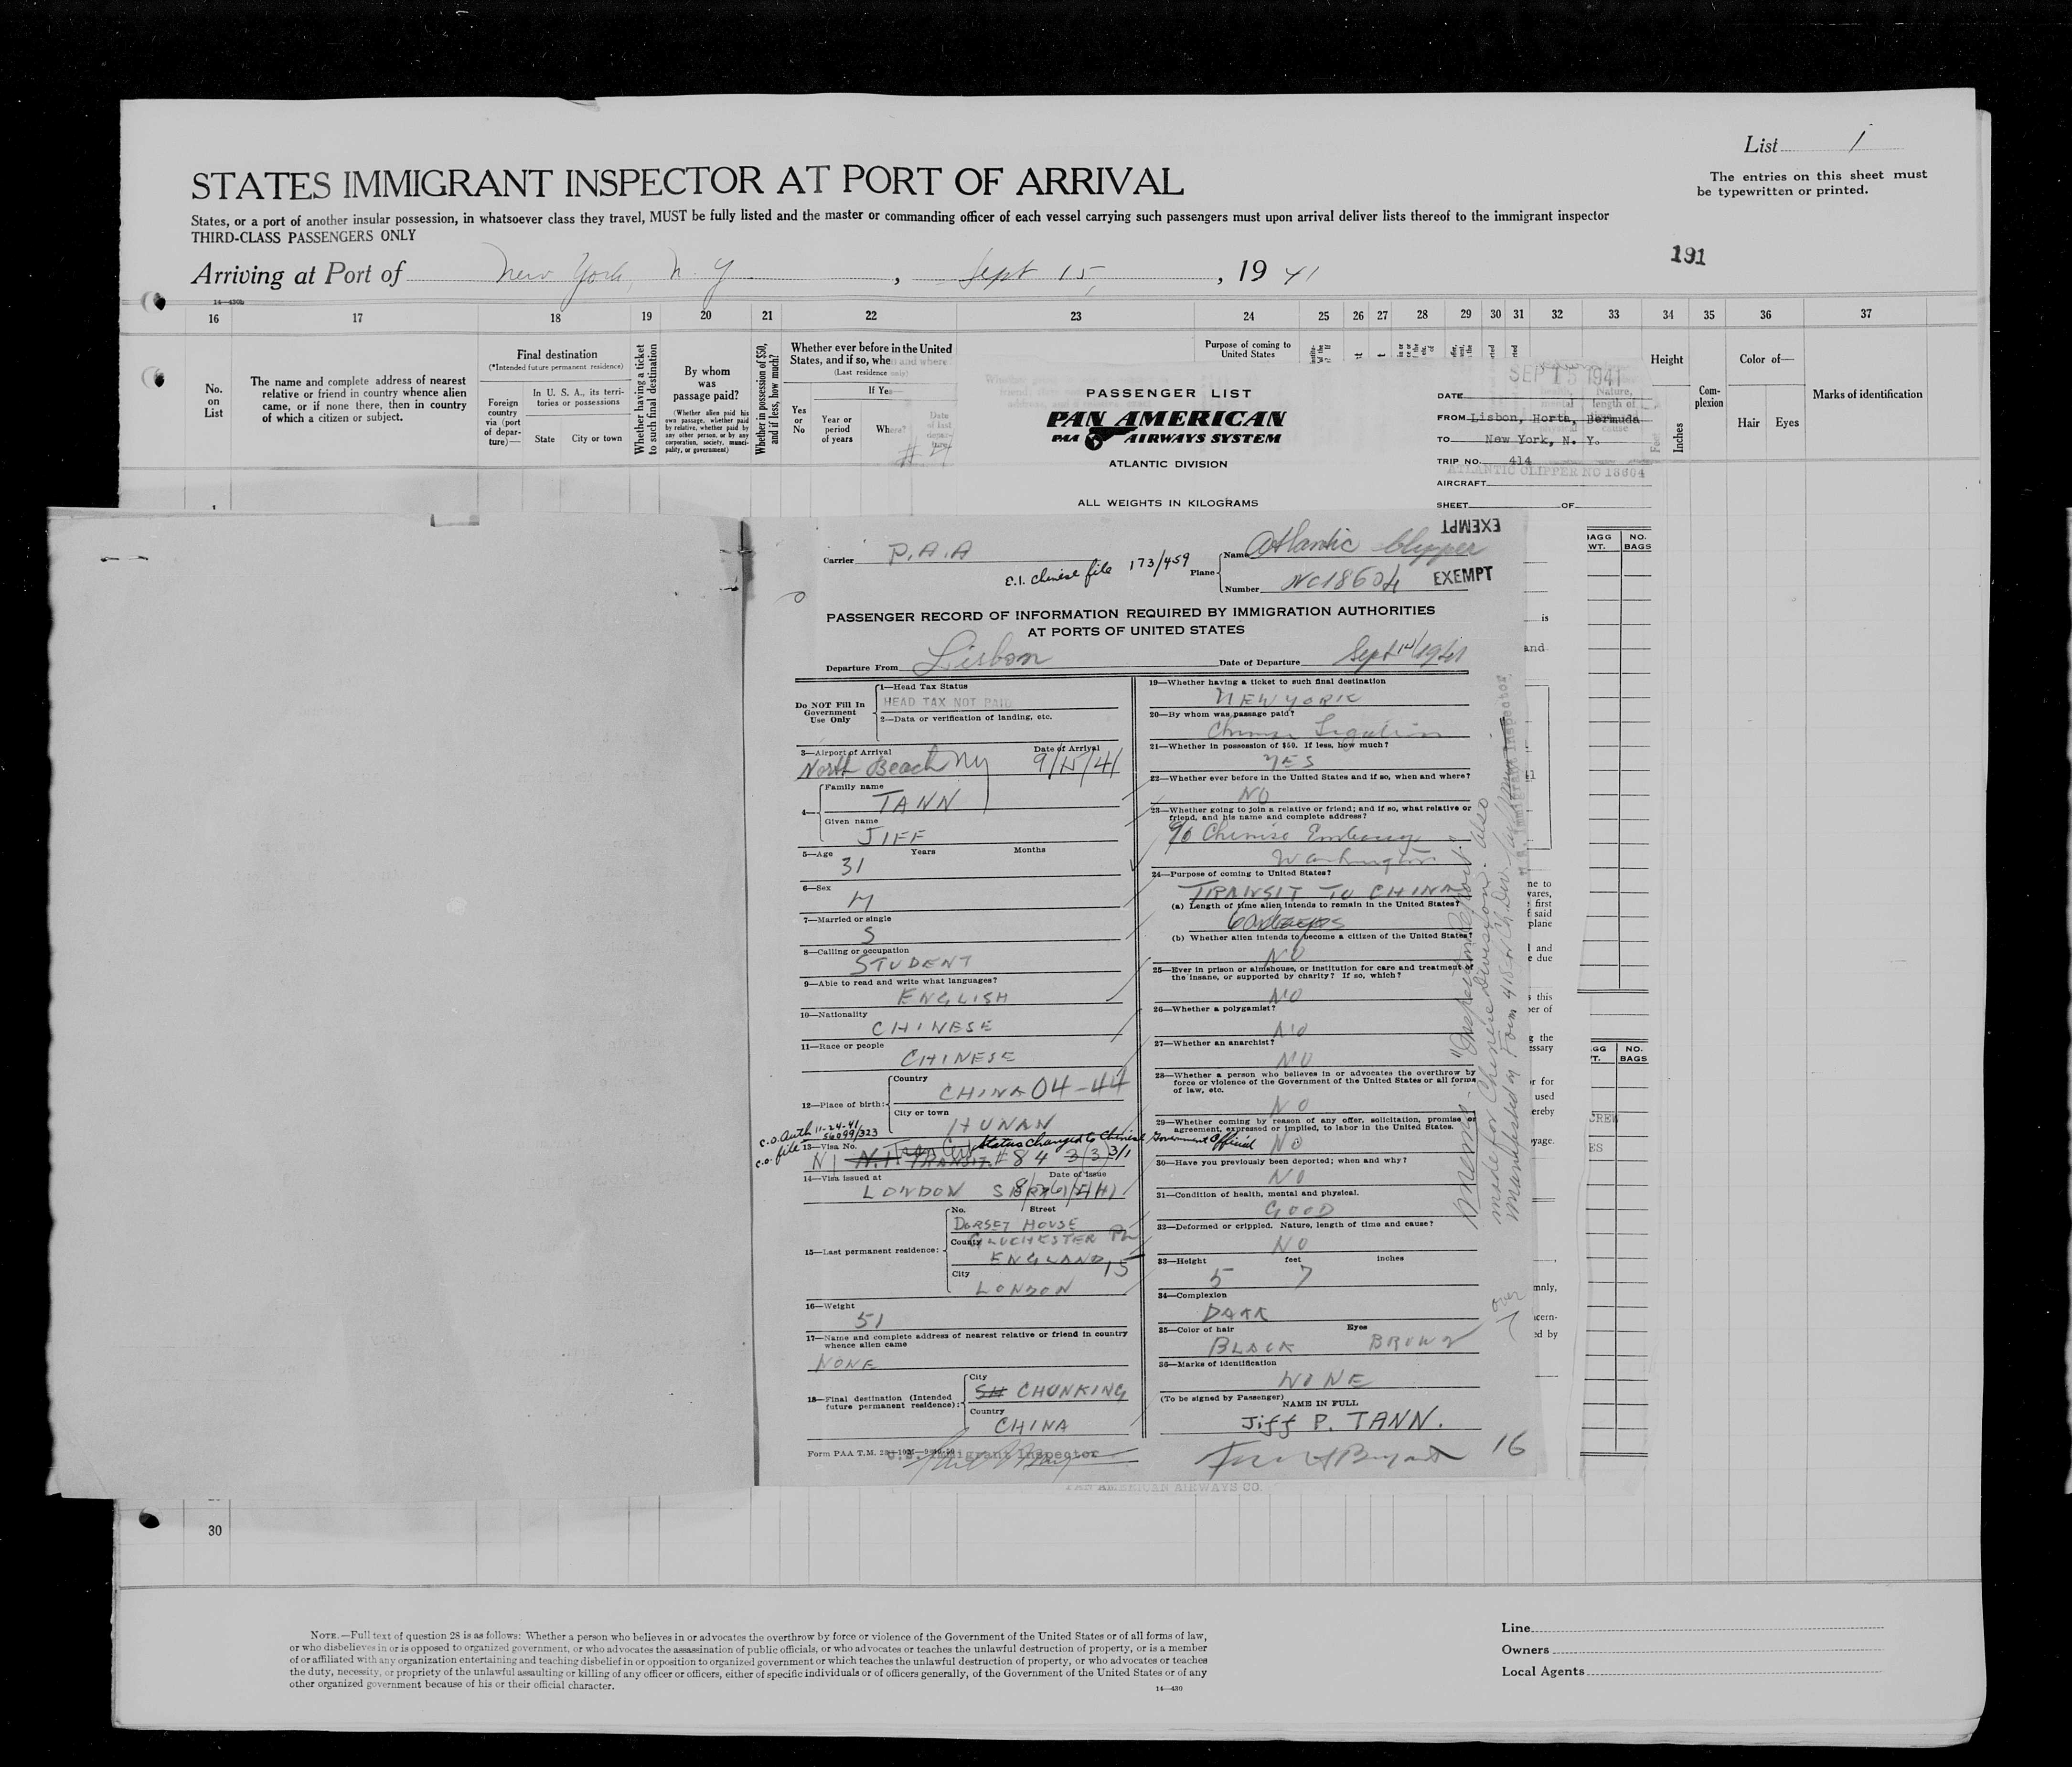 List 1
The entries on this sheet must
be typewritten or printed.
STATES IMMIGRANT INSPECTOR AT PORT OF ARRIVAL
States, or a port of another insular possession, in whatsoever class they travel, MUST be fully listed and the master or commanding officer of each vessel carrying such passengers must upon arrival deliver lists thereof to the immigrant inspector
THIRD-CLASS PASSENGERS ONLY
191
Arriving at Port of New York, N. Y , Sept 15, , 19 41
14—430b
16 17 18 19 20 21 22 23 24 25 26 27 28 29 30 31 32 33 34 35 36 37
No.
on
List
The name and complete address of nearest
relative or friend in country whence alien
came, or if none there, then in country
of which a citizen or subject.
Final destination
(*Intended future permanent residence)
Foreign
country
via (port
of depar-
ture)—
In U. S. A., its terri-
tories or possessions
State City or town
Whether having a ticket
to such final destination
By whom
was
passage paid?
(Whether alien paid his
own passage, whether paid
by relative, whether paid by
any other person, or by any
corporation, society, munici-
pality, or government)
Whether in possession of $50,
and if less, how much?
Whether ever before in the United
States, and if so, when and where
(Last residence only)
If Yes
Yes
or
No
Year or
period
of years
Where?
Date
of last
depar-
ture
Purpose of coming to
United States
Height
Feet
Inches
Com-
plexion
Color of—
Hair Eyes
Marks of identification
PASSENGER LIST
PAN AMERICAN
PAA AIRWAYS SYSTEM
ATLANTIC DIVISION
ALL WEIGHTS IN KILOGRAMS
DATE SEP 15 1941
FROM Lisbon, Horta, Bermuda
TO New York, N. Y.
TRIP NO. 414
AIRCRAFT ATLANTIC CLIPPER NC 18604
SHEET OF
EXEMPT
Carrier P.A.A
E.I. Chinese file 173/459
Plane
Name Atlantic Clipper
Number NC18604 EXEMPT
PASSENGER RECORD OF INFORMATION REQUIRED BY IMMIGRATION AUTHORITIES
AT PORTS OF UNITED STATES
Departure From Lisbon Date of Departure Sept 14/1941
Do NOT Fill In
Government
Use Only
1—Head Tax Status
HEAD TAX NOT PAID
2—Data or verification of landing, etc.
3—Airport of Arrival Date of Arrival
North Beach NY 9/15/41
4— Family name
TANN
Given name
JIFF
5—Age Years Months
31
6—Sex
M
7—Married or single
S
8—Calling or occupation
STUDENT
9—Able to read and write what languages?
ENGLISH
10—Nationality
CHINESE
11—Race or people
CHINESE
12—Place of birth:
Country
CHINA 04-44
City or town
HUNAN
C.O. Auth 11-24-41
C.O. file 56099/323
Status changed to Chinese Government Official
13—Visa No.
TRANSIT # 84 3(3) 3/1
14—Visa issued at Date of Issue
LONDON
15—Last permanent residence:
No. Street
DORSET HOUSE
County
GLUCHESTER PL
ENGLAND 15
City
LONDON
16—Weight
51
17—Name and complete address of nearest relative or friend in country
whence alien came
NONE
18—Final destination (Intended
future permanent residence):
City
SH CHUNKING
Country
CHINA
U.S. Immigrant Inspector
19—Whether having a ticket to such final destination
NEW YORK
20—By whom was passage paid?
Chinese Legation
21—Whether in possession of $50. If less, how much?
YES
22—Whether ever before in the United States and if so, when and where?
NO
23—Whether going to join a relative or friend; and if so, what relative or
friend, and his name and complete address?
c/o Chinise Embassy
Washington
24—Purpose of coming to United States?
TRANSIT TO CHINA
(a) Length of time alien intends to remain in the United States?
(b) Whether alien intends to become a citizen of the United States?
NO
25—Ever in prison or almshouse, or institution for care and treatment of
the insane, or supported by charity? If so, which?
NO
26—Whether a polygamist?
NO
27—Whether an anarchist?
NO
28—Whether a person who believes in or advocates the overthrow by
force or violence of the Government of the United States or all forms
of law, etc.
NO
29—Whether coming by reason of any offer, solicitation, promise or
agreement, expressed or implied, to labor in the United States.
NO
30—Have you previously been deported; when and why?
NO
31—Condition of health, mental and physical.
GOOD
32—Deformed or crippled. Nature, length of time and cause?
NO
33—Height feet inches
5 7
34—Complexion
DARK
35—Color of hair Eyes
BLACK BROWN
36—Marks of identification
NONE
(To be signed by Passenger)
NAME IN FULL
Jiff P. TANN.
16
over
BAGG
WT.
NO.
BAGS
NO.
BAGS
CREW
PAN AMERICAN AIRWAYS CO.
30
NOTE.—Full text of question 28 is as follows: Whether a person who believes in or advocates the overthrow by force or violence of the Government of the United States or of all forms of law,
or who disbelieves in or is opposed to organized government, or who advocates the assassination of public officials, or who advocates or teaches the unlawful destruction of property, or is a member
of or affiliated with any organization entertaining and teaching disbelief in or opposition to organized government or which teaches the unlawful destruction of property, or who advocates or teaches
the duty, necessity, or propriety of the unlawful assaulting or killing of any officer or officers, either of specific individuals or of officers generally, of the Government of the United States or of any
other organized government because of his or their official character.
14—430
Line
Owners
Local Agents